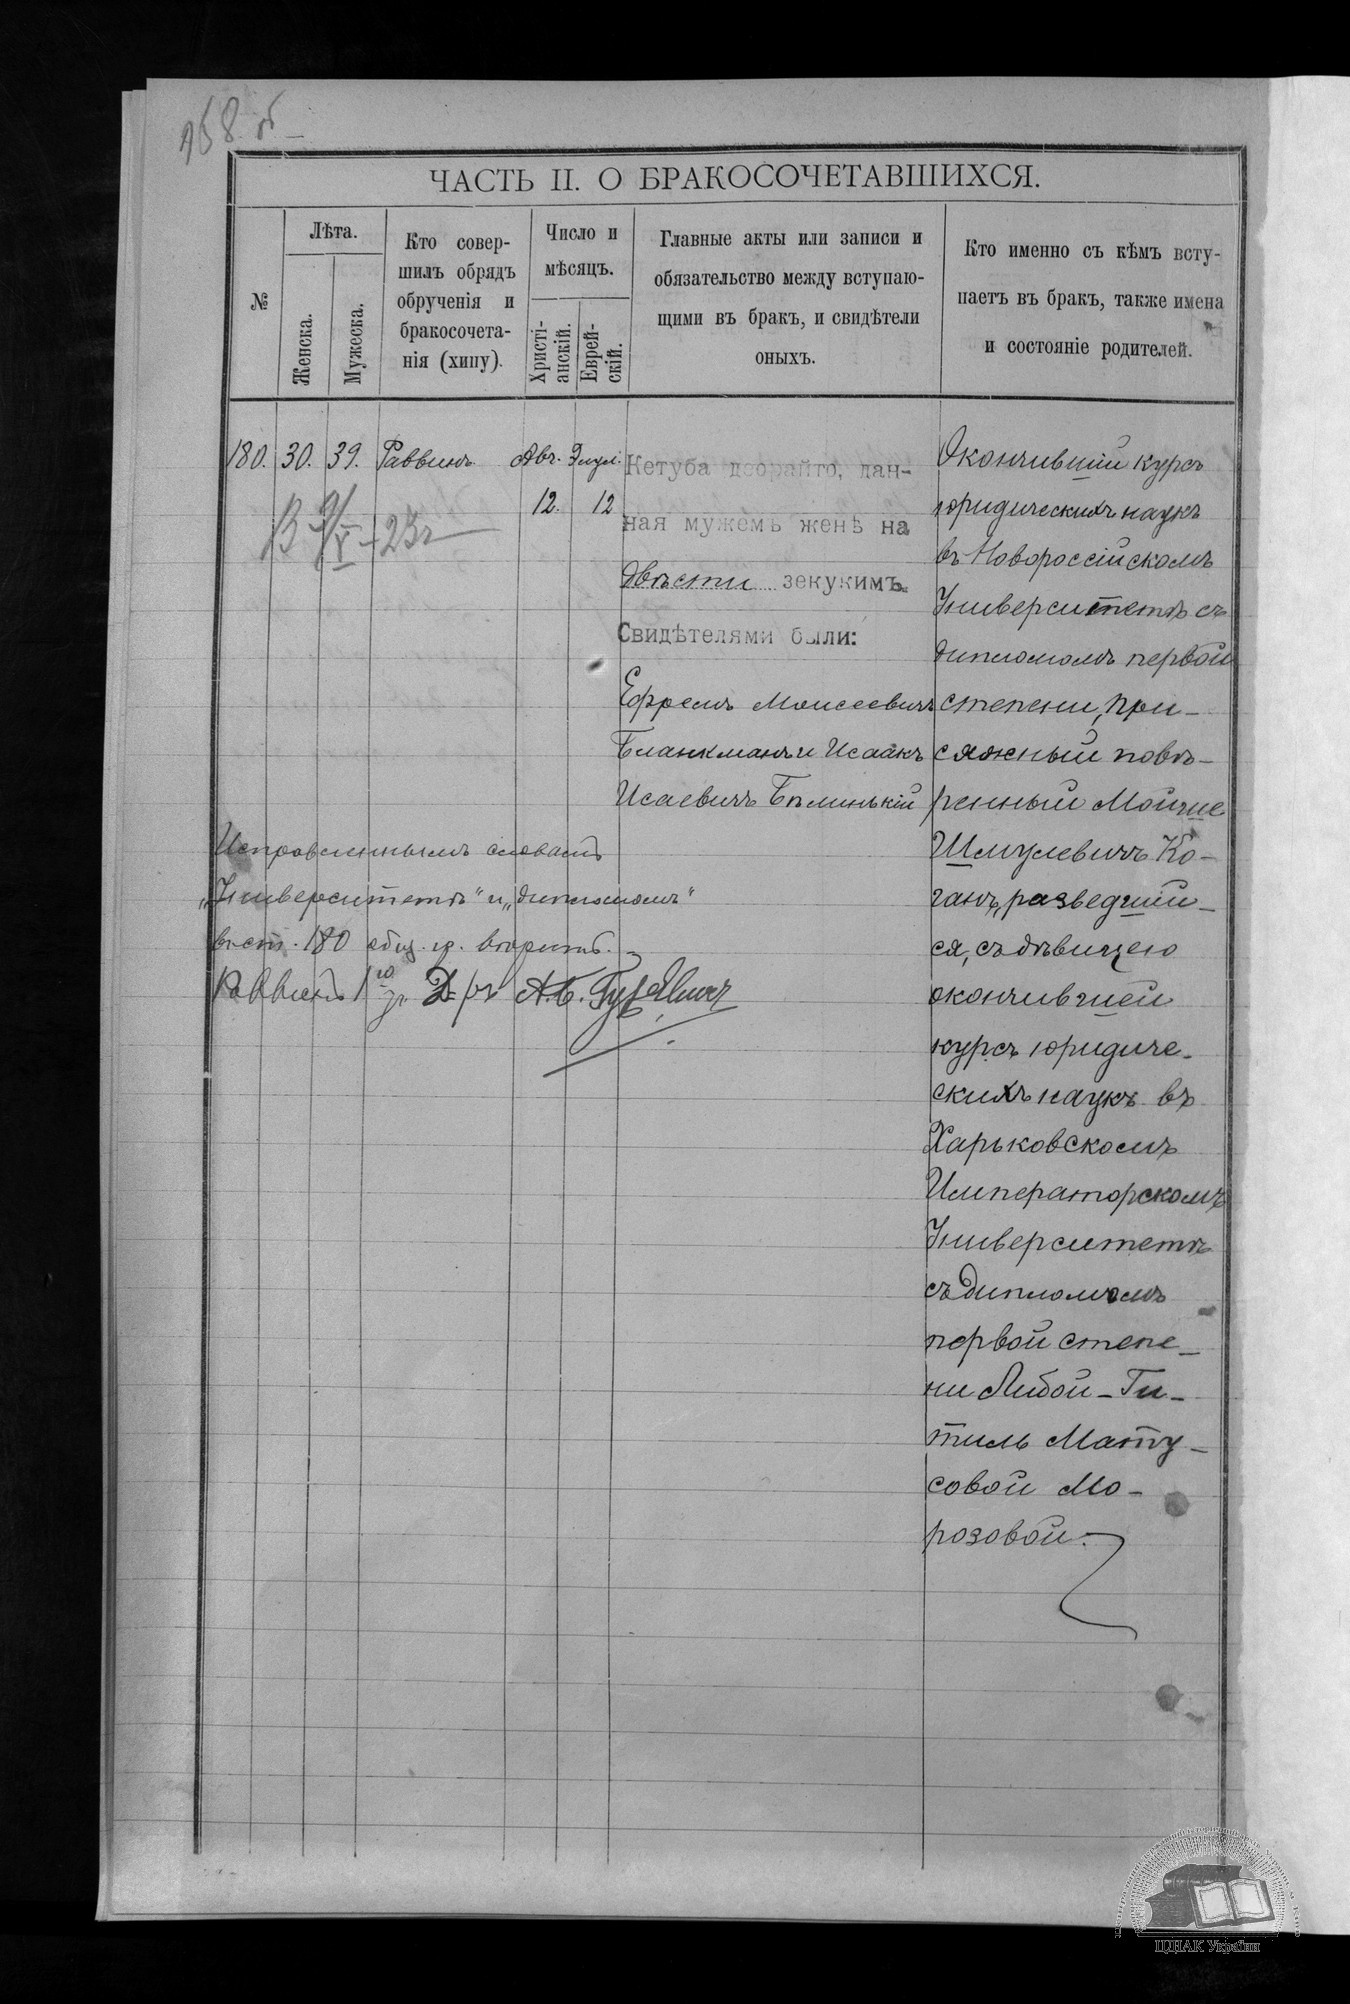 ЧАСТЬ II. О БРАКОСОЧЕТАВШИХСЯ.
№
Лѣта.
Женска.
Мужеска.
Кто совер-
шилъ обрядъ
обрученія и
бракосочета-
нія (хипу).
Число и
мѣсяцъ.
Христі-
анскій.
Еврей-
скій.
Главные акты или записи и
обязательство между вступаю-
щими въ бракъ, и свидѣтели
оныхъ.
Кто именно съ кѣмъ всту-
паетъ въ бракъ, также имена
и состояніе родителей.
180.
30.
39.
Раввинъ
Авг.
12.
Элул.
12
Кетуба деорайто, дан-
ная мужемъ женѣ на
двѣсти зекукимъ.
Свидѣтелями были:
Ефремъ Моисеевичъ
Бланкманъ и Исаакъ
Исаевичъ Бѣлинькій
Окончившій курсъ
юридическихъ наукъ
въ Новороссійскомъ
Университетѣ съ
дипломомъ первой
степени, при-
сяжный повѣ-
ренный Мойше
Шмулевичъ Ко-
ганъ, разведшій-
ся, съ дѣвицею
окончившей
курсъ юридиче-
скихъ наукъ въ
Харьковскомъ
Императорскомъ
Университетѣ
съ дипломомъ
первой степе-
ни Либой-Ги-
тиль Мату-
совой Мо-
розовой.
Исправленнымъ словамъ
„Университетѣ" и „дипломомъ"
въ ст. 180 общ. гр. вѣрить.
Раввинъ